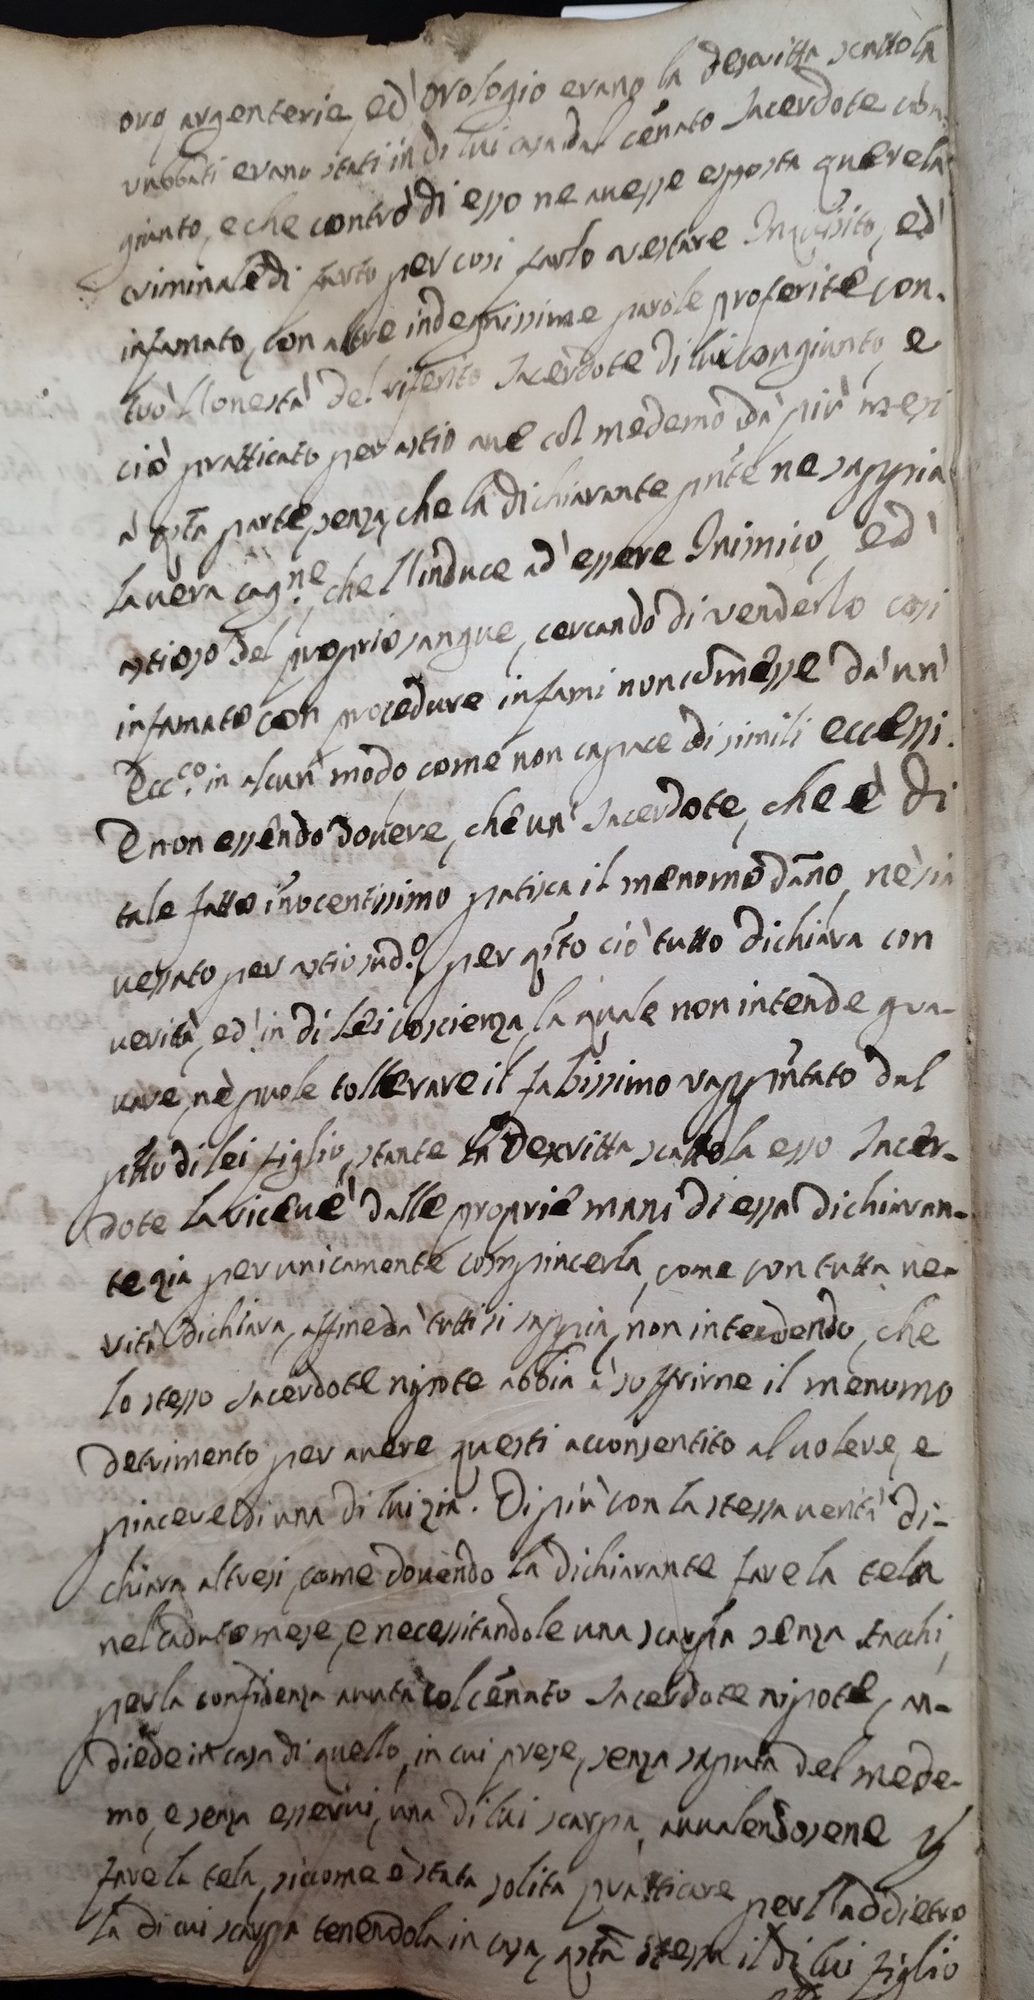 oro argenterie, ed' orologio erano la descritta scattola
rubbati erano stati in di lui casa dal cen̄ato Sacerdote con-
giunto, e che contro di esso ne avesse esposta querela
criminale di furto per così farlo restare Inquisito, ed'
infamato, con altre indegnissime parole proferite con-
tro l'onestà del riferito Sacerdote di lui congiunto, e
ciò pratticato per astio ave col medemo da' più mesi
à q̄sta parte, senza, che la dichiarante p̄nte ne sappia
la vera cag.ne, che l'induce ad' essere Inimico, ed'
astioso del proprio sangue, cercando di renderlo così
infamato con procedure infami non com̄esse da' un'
Ecc.co in alcun' modo, come non capace di simili eccessi.
E non essendo dovere, che un' Sacerdote, che è di
tale fatto in̄ocentissimo patisca il menomo dan̄o, nè sia
vessato per astio sud.o, per q̄sto ciò tutto dichiara con
verità, ed' in di lei coscienza, la quale non intende gra-
vare, nè puole tollerare il falsissimo rapp̄ntato dal
p̄tto di lei figlio, stante la descritta scattola esso Sacer-
dote la ricevè dalle proprie mani di essa dichiaran-
te zia per unicamente compiacerla, come con tutta ve-
rità dichiara, affine da' tutti si sappia, non intendendo, che
lo stesso Sacerdote nipote abbia à soffrirne il menomo
detrimento per avere questi acconsentito al volere, e
piacere di una di lui zia. Di più con la stessa verità di-
chiara altresì, come dovendo la dichiarante fare la tela
nel caduto mese, e necessitandole una scarpa senza tacchi,
per la confidenza avuta col cen̄ato Sacerdote nipote, an-
diede in casa di quello, in cui prese, senza saputa del mede-
mo, e senza esservi, una di lui scarpa, avvalendosene p
fare la tela, siccome è stata solita pratticare per l'addietro
la di cui scarpa tenendola in casa, q̄sta stessa il di lui figlio